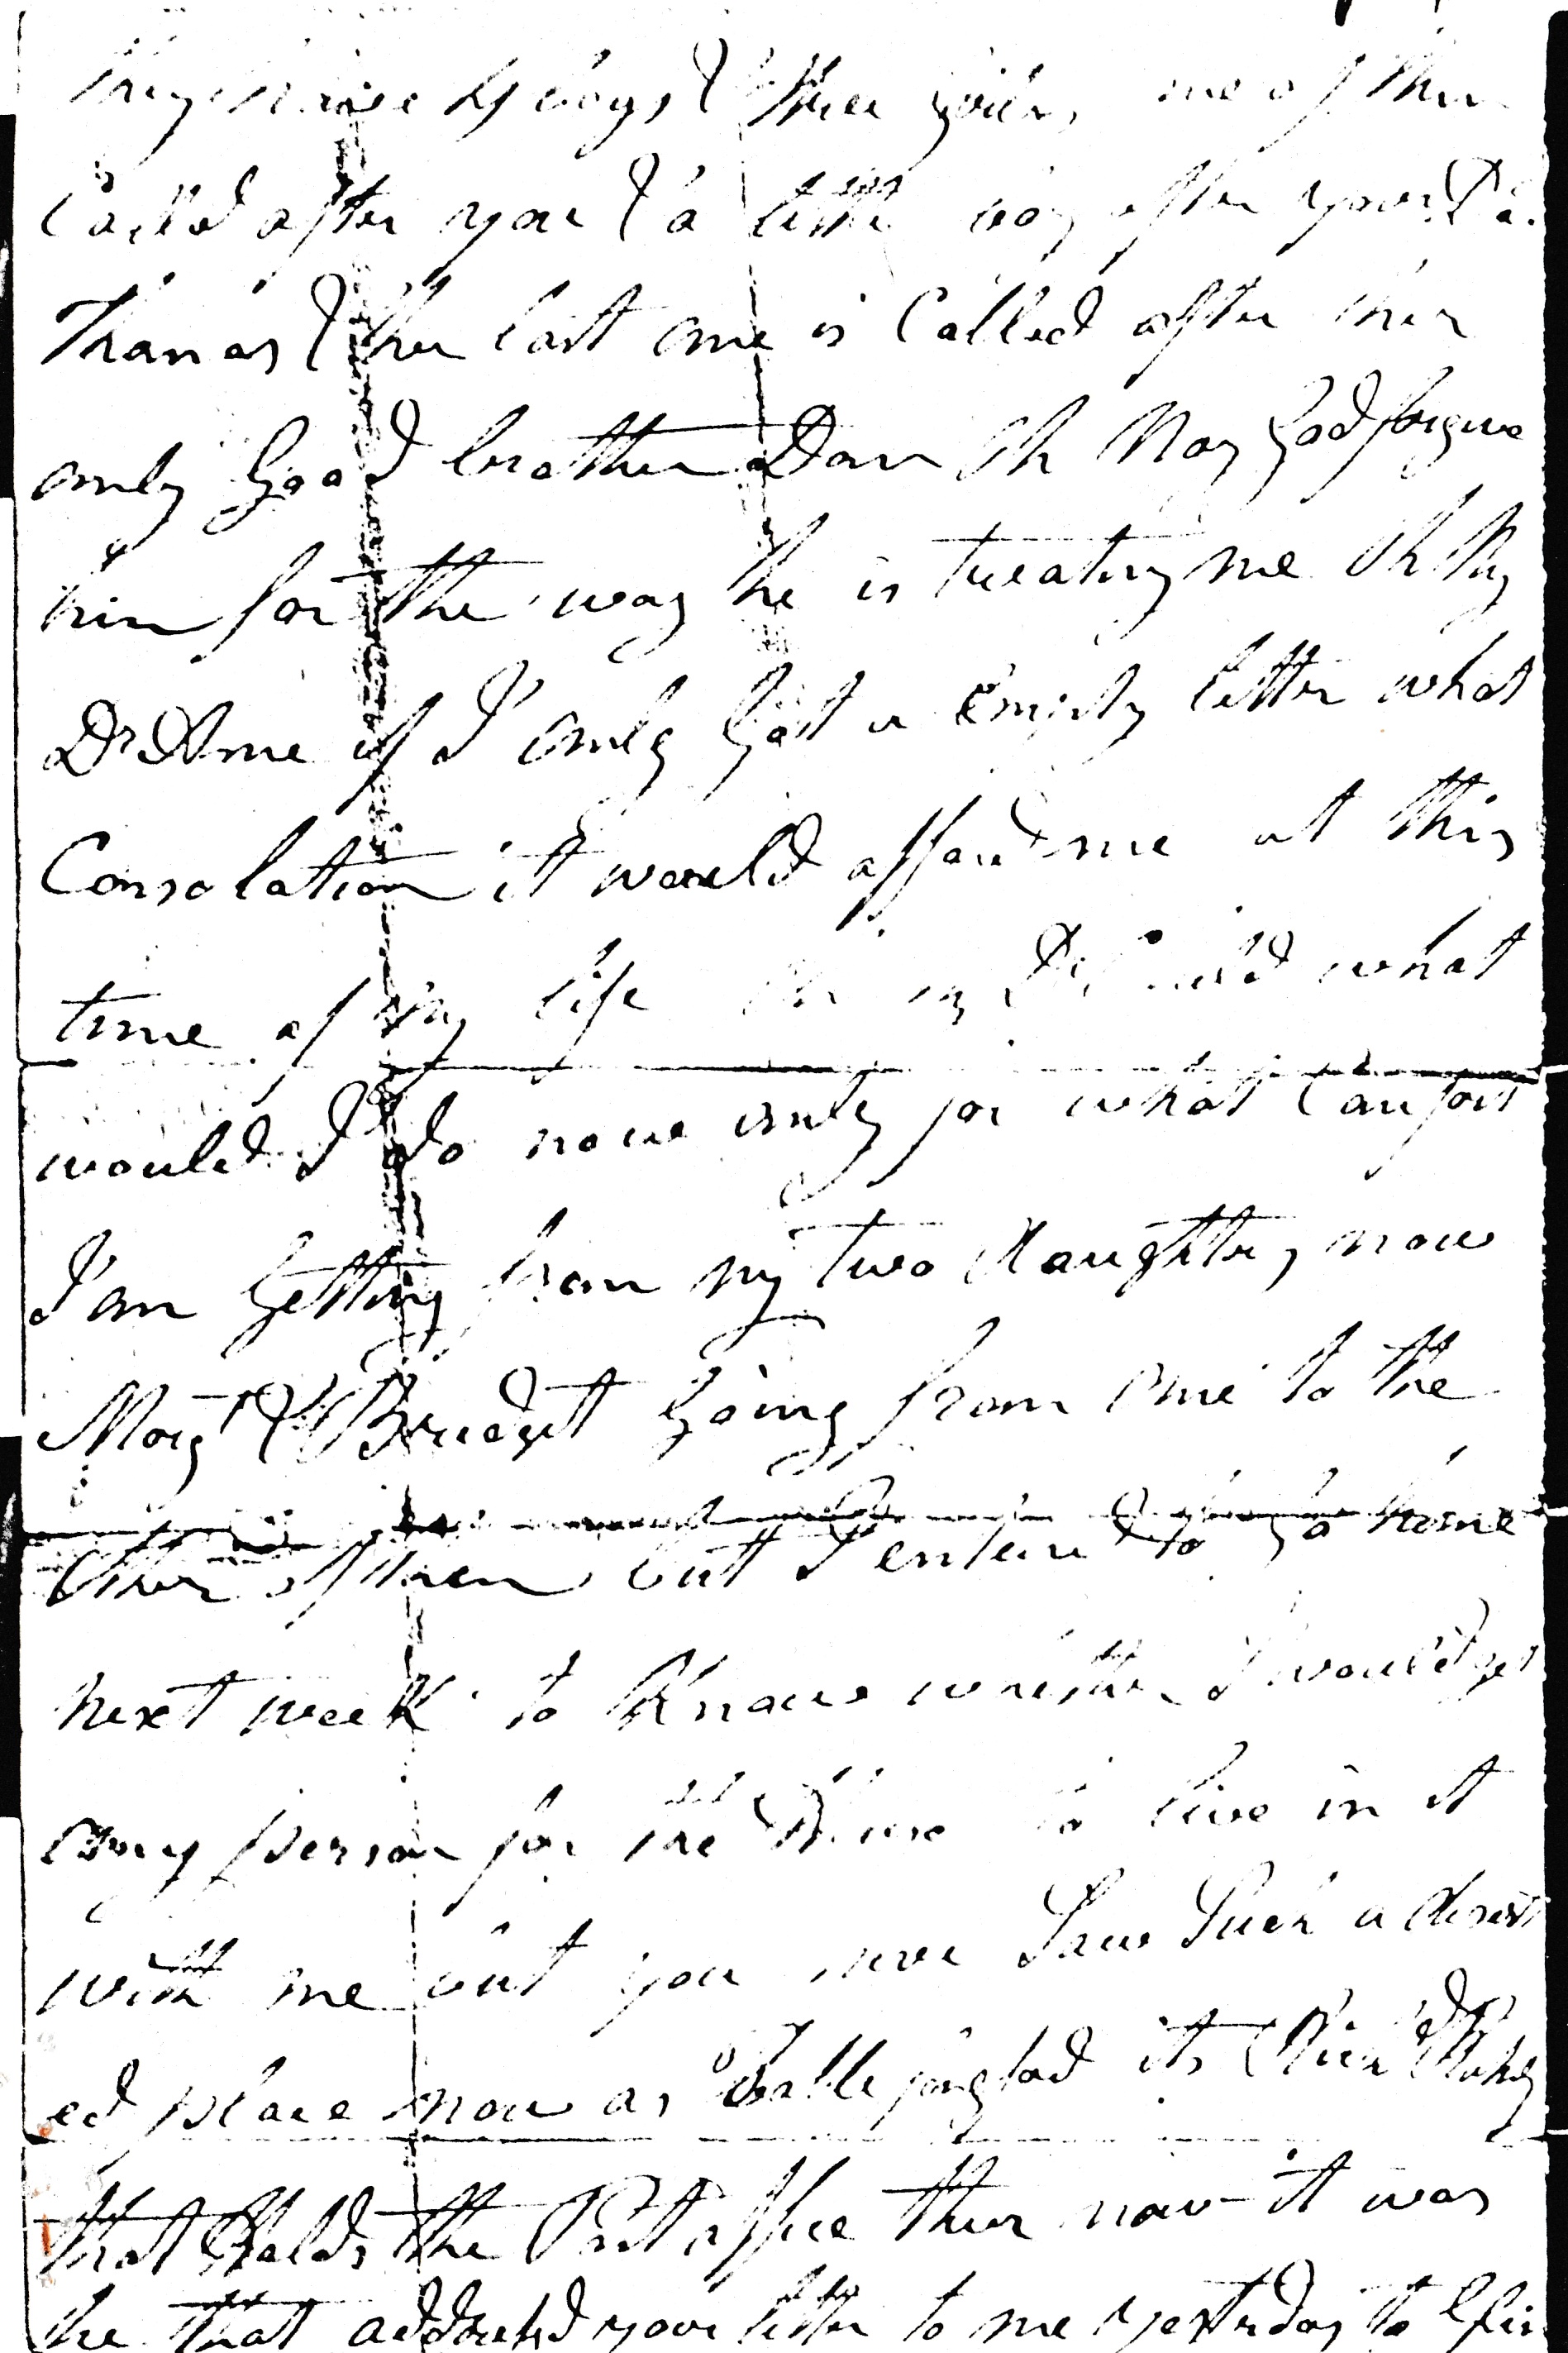 they have 4 boys & three Girls, one of them
Called after you & a little boy after your Da.
Thomas & the last one is Called after her
only Good brother Dan Oh May God forgive
him for the way he is treating me Oh My
Dr if I only Got a Empty letter what
Consolation it would afford me at this
time of My life Oh my Dr Child what
would I do now only for what Comfort
I'am Getting from my two daughters now
Mary & Bridget Going from one to the
Other of them but I entend to go home
next week to Know whether I would get
any person for the to live in it
with me but you never Saw Such a desert
ed place now as its Rich'd
that holds the Post office there now it was
he that addressed your letter to me yesterday to